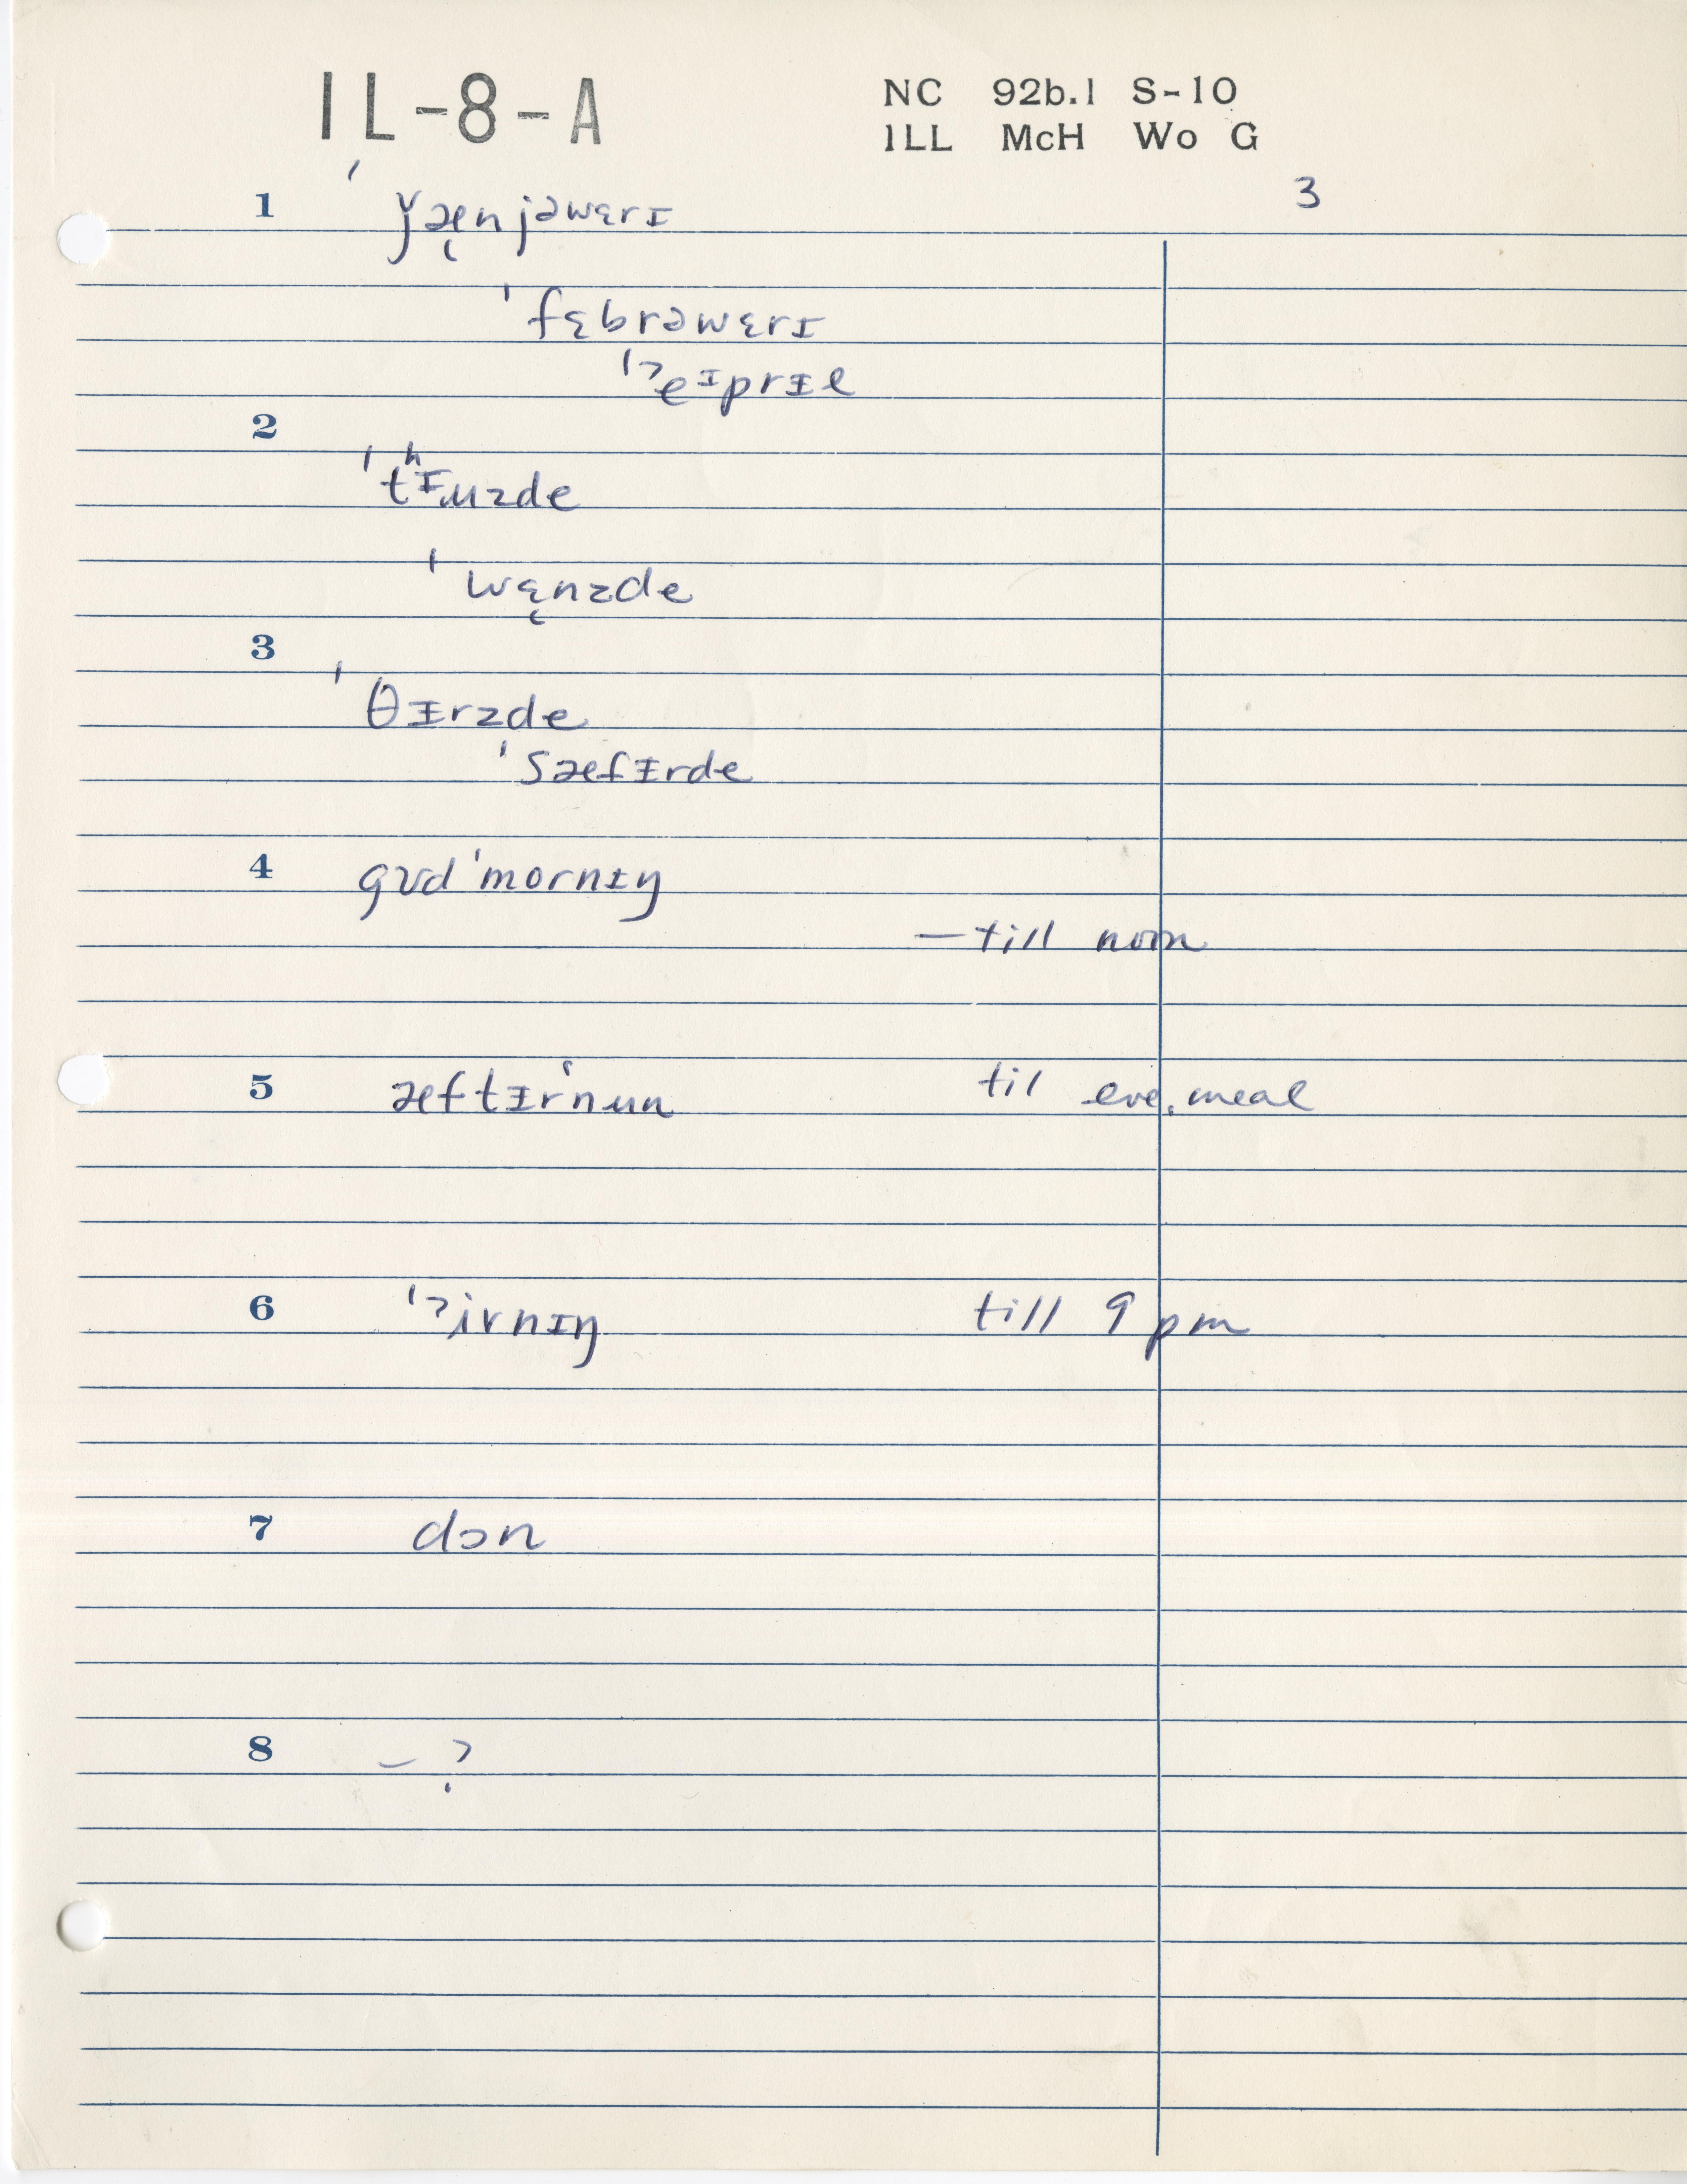 IL-8-A
NC 92b.1 S-10
ILL McH Wo G
3
1 ˈǰæ̨njəwɛrɪ
ˈfɛbrəwɛrɪ
ˈʔeɪprɪl
2
ˈtʰɪuzde
ˈwɛ̨nzde
3
ˈθɪrzde
ˈsæfɪrde
4 gʊdˈmornɪŋ
— till noon
5 æftɪrˈnun til eve. meal
6 ˈʔivnɪŋ till 9 pm
7 dɔn
8 – ?